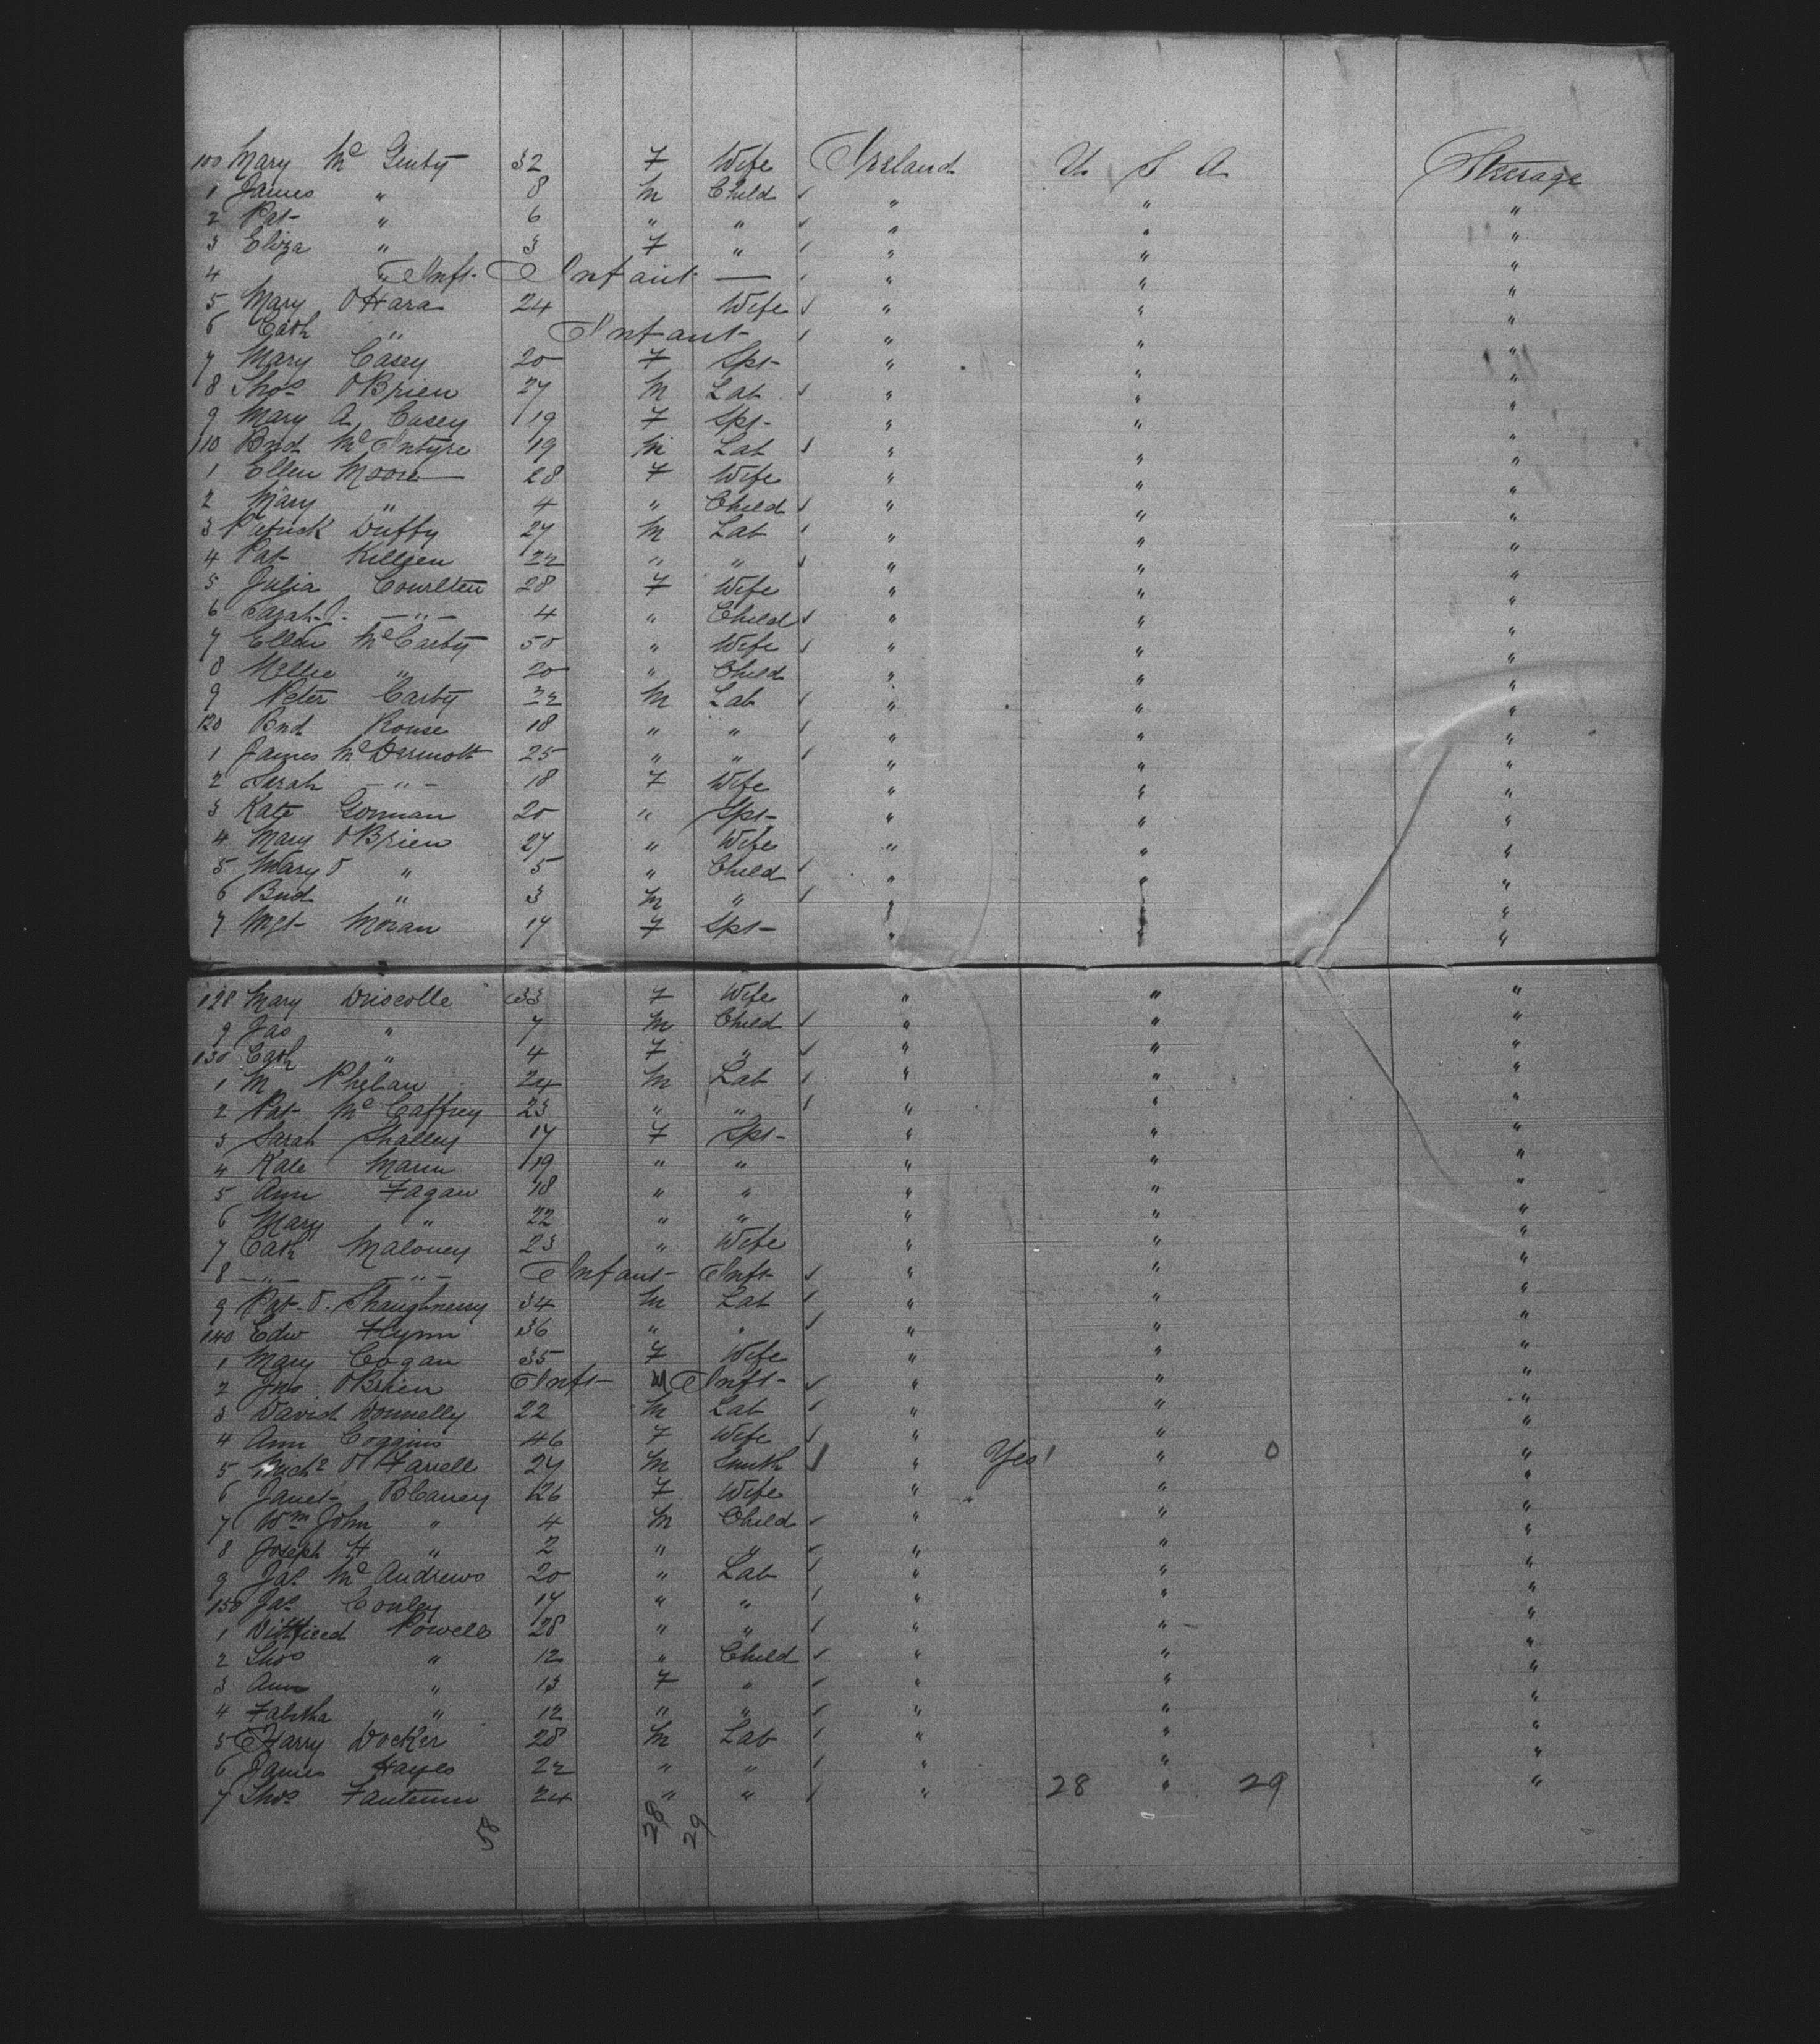 100 Mary Mc Ginty 32 F Wife Ireland U. S. A Steerage
1 James " 8 M Child " " "
2 Pat " 6 " " " " "
3 Eliza " 3 F " " " "
4 " Inft. Infant — " " "
5 Mary OHara 24 Wife " " "
6 Cath " Infant " " "
7 Mary Casey 20 F Spt " " "
8 Thos OBrien 27 M Lab " " "
9 Mary A. Casey 19 F Spt " " "
110 Bnd McIntyre 19 M Lab " " "
1 Ellen Moore 28 F Wife " " "
2 Mary " 4 " Child " " "
3 Patrick Duffy 27 M Lab " " "
4 Pat Killeen 22 " " " " "
5 Julia 28 F Wife " " "
6 Sarah J. — " — 4 " Child " " "
7 Ellen McCarty 50 " Wife " " "
8 Nellie " 20 " Child " " "
9 Peter Carty 22 M Lab " " "
120 Bnd Rouse 18 " " " " "
1 James McDermott 25 " " " " "
2 Sarah — " — 18 F Wife " " "
3 Kate Gorman 20 " Spt " " "
4 Mary OBrien 27 " Wife " " "
5 Mary O " 5 " Child " " "
6 Bnd " 3 M " " " "
7 Mgt Moran 17 F Spt " " "
128 Mary Driscolle 33 F Wife " " "
9 Jas " 7 M Child " " "
130 Cath " 4 F " " " "
1 M. Phelan 24 M Lab " " "
2 Pat McCaffrey 23 " " " " "
3 Sarah Shalley 17 F Spt " " "
4 Kate Mann 19 " " " " "
5 Ann Fagan 18 " " " " "
6 Mary " 22 " " " " "
7 Cath Maloney 23 " Wife " " "
8 — " — — " — Infant Inft " " "
9 Pat. O. Shaughnessy 34 M Lab " " "
140 Edw Flynn 36 " " " " "
1 Mary Cogan 35 F Wife " " "
2 Jno OBrien Inft M Inft " " "
3 David Donnelly 22 M Lab " " "
4 Ann Coggins 46 F Wife " " "
5 Michl O'Farrell 27 M Smith " Yes " 0 "
6 Janet Blaney 26 F Wife " " " "
7 Wm John " 4 M Child " " "
8 Joseph H " 2 " " " " "
9 Jas. McAndrews 20 " Lab " " "
150 Jas. Conley 17 " " " " "
1 Powell 28 " " " " "
2 Thos " 12 " Child " " "
3 Ann " 13 F " " " "
4 Tabitha " 12 " " " " "
5 Harry Docker 28 M Lab " " "
6 James Hayes 22 " " " " "
7 Thos 24 " " " 28 " 29 "
58 28 29